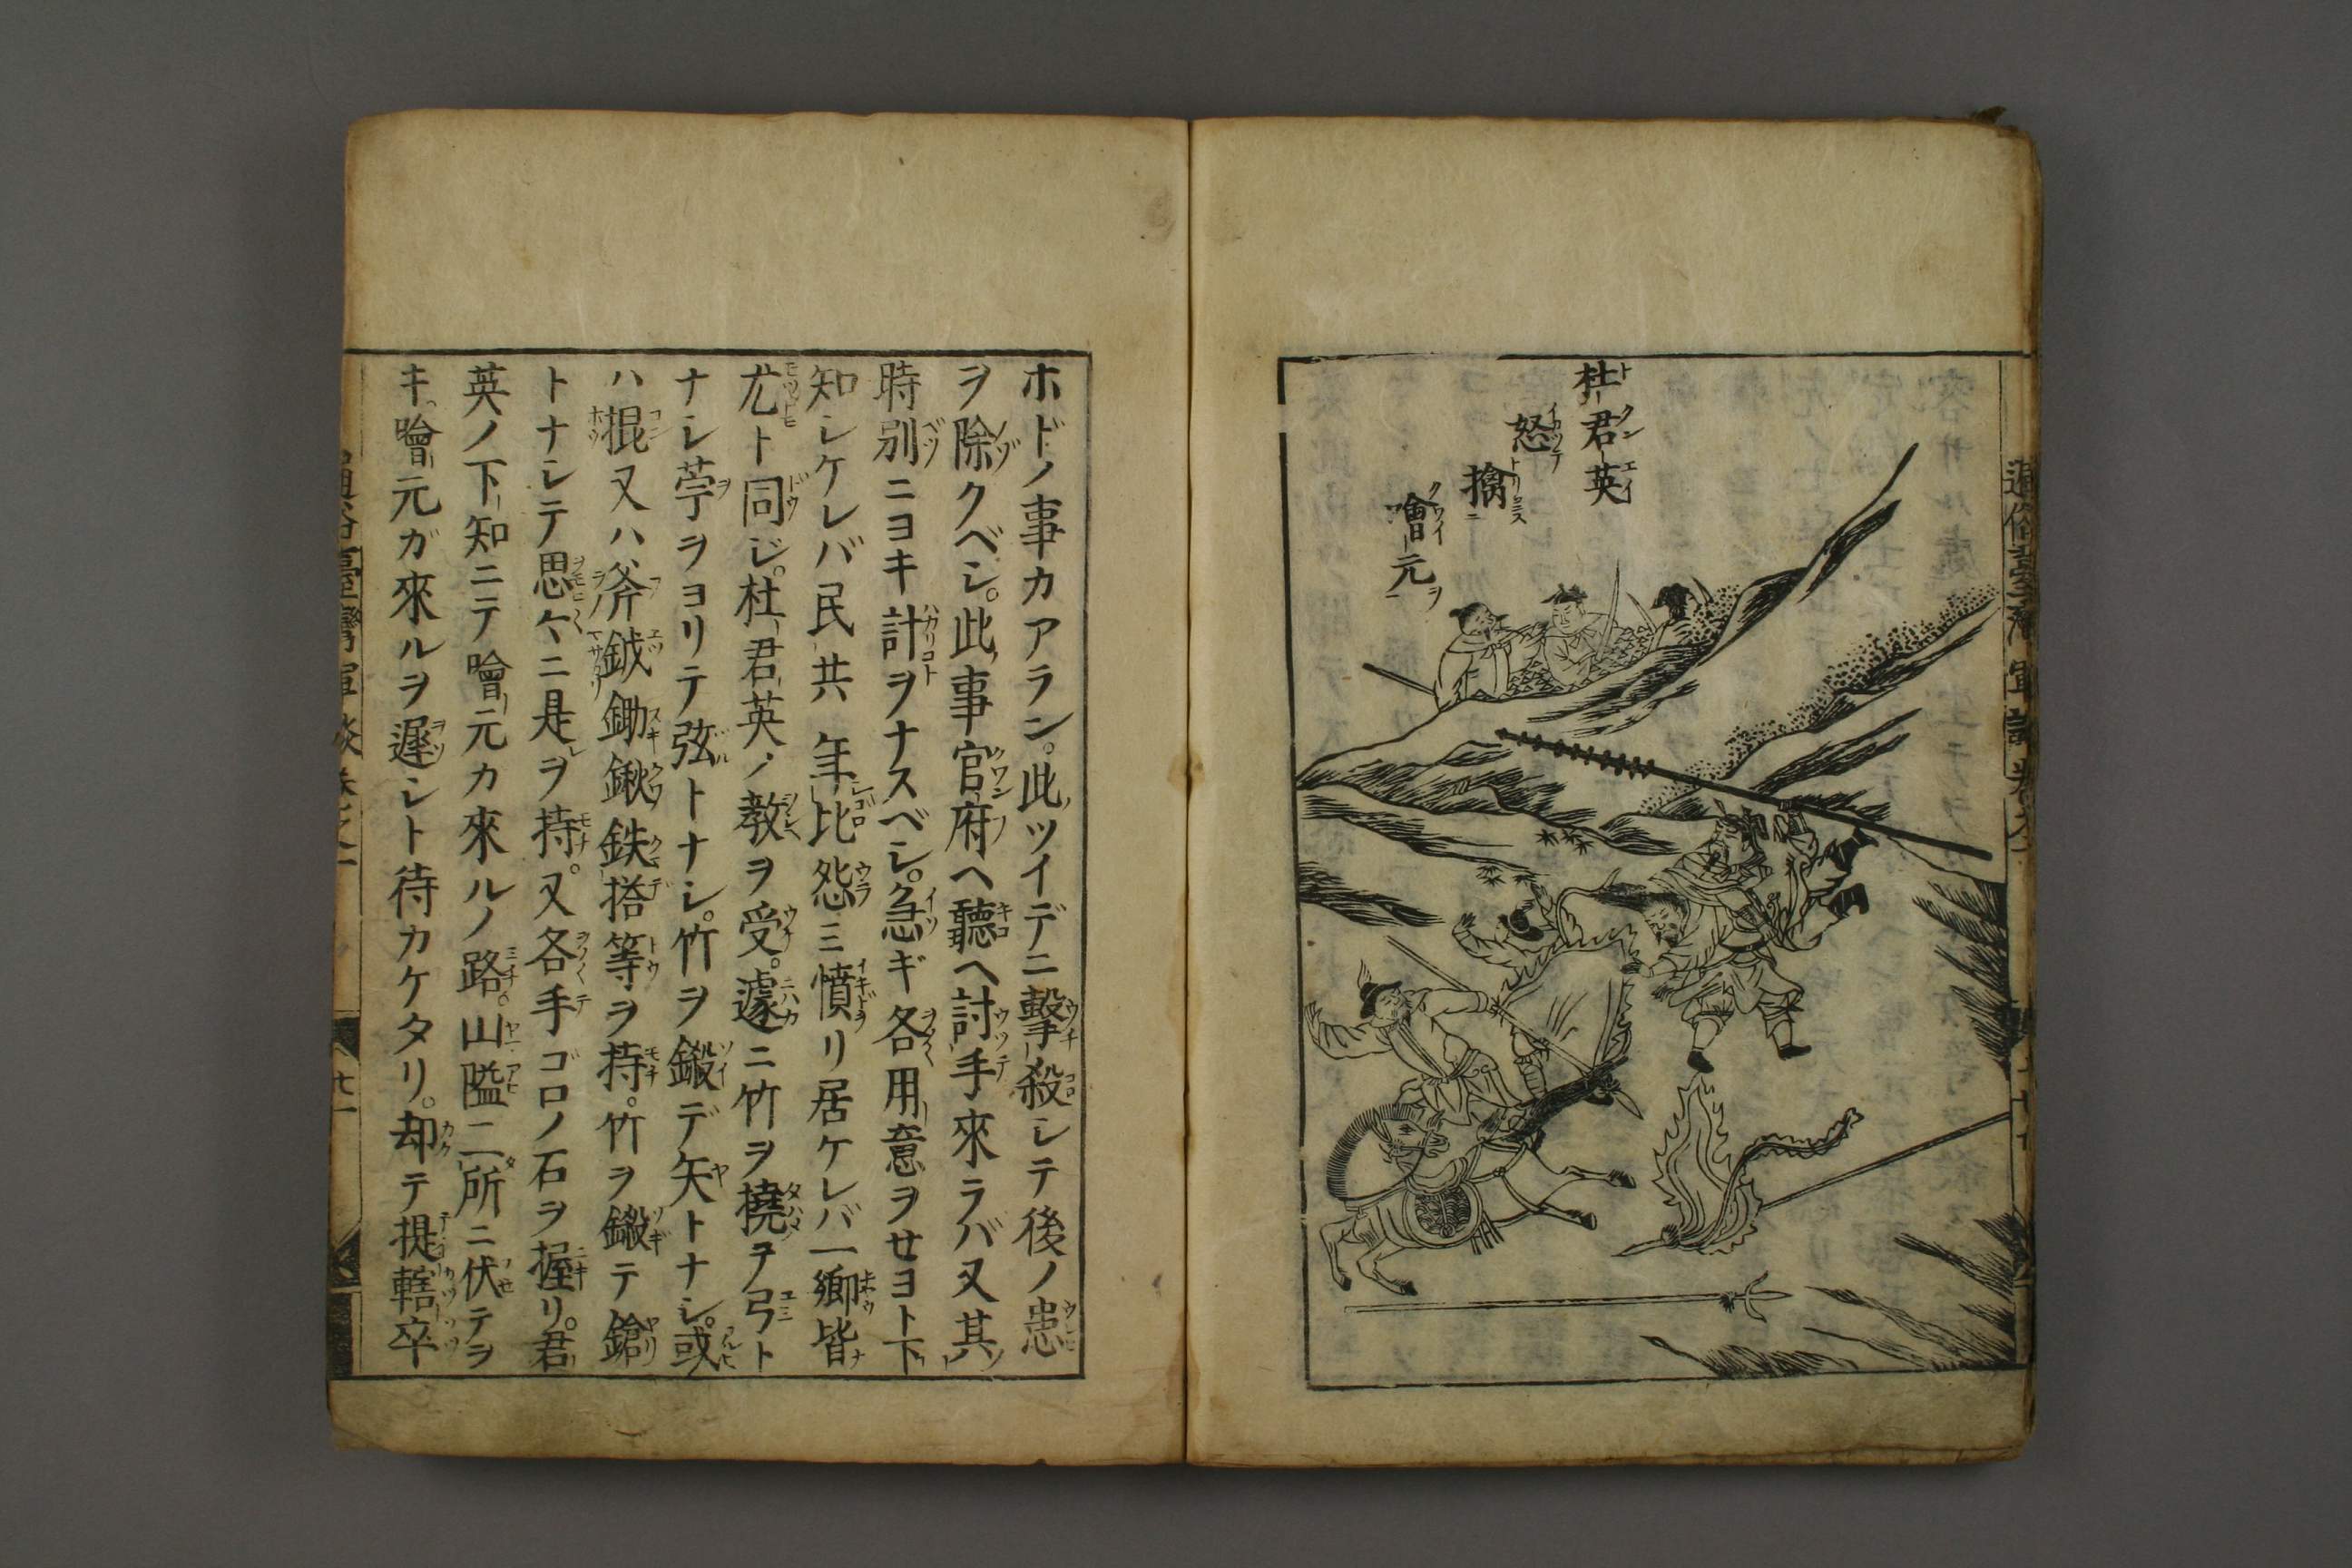 通俗臺灣軍談卷之
杜君英
怒
擒
噲元
ホドノ事カアラン。此ツイデニ擊殺シテ後ノ患
ヲ除クベシ。此事官府ヘ聽ヘ討手來ラバ又其
時別ニヨキ計ヲナスベシ。急ギ各用意ヲセヨト下
知シケレバ民共年比怨ミ憤リ居ケレバ一鄉皆
尤ト同じ。杜君英ノ教ヲ受。遽ニ竹ヲ撓テ弓ト
ナシ苧ヲヨリテ弦トナシ。竹ヲ鏾デ矢トナシ。或
ハ棍又ハ斧鉞鋤鍬鉄搭等ヲ持。竹ヲ鏾テ鎗
トナシテ思ヒ〱ニ是ヲ持。又各手ゴロノ石ヲ握リ。君
英ノ下知ニテ噲元カ來ルノ路。山隘二所ニ伏テヲ
キ。噲元ガ來ルヲ遲シト待カケタリ。却テ提轄卒
通俗臺灣軍談卷之